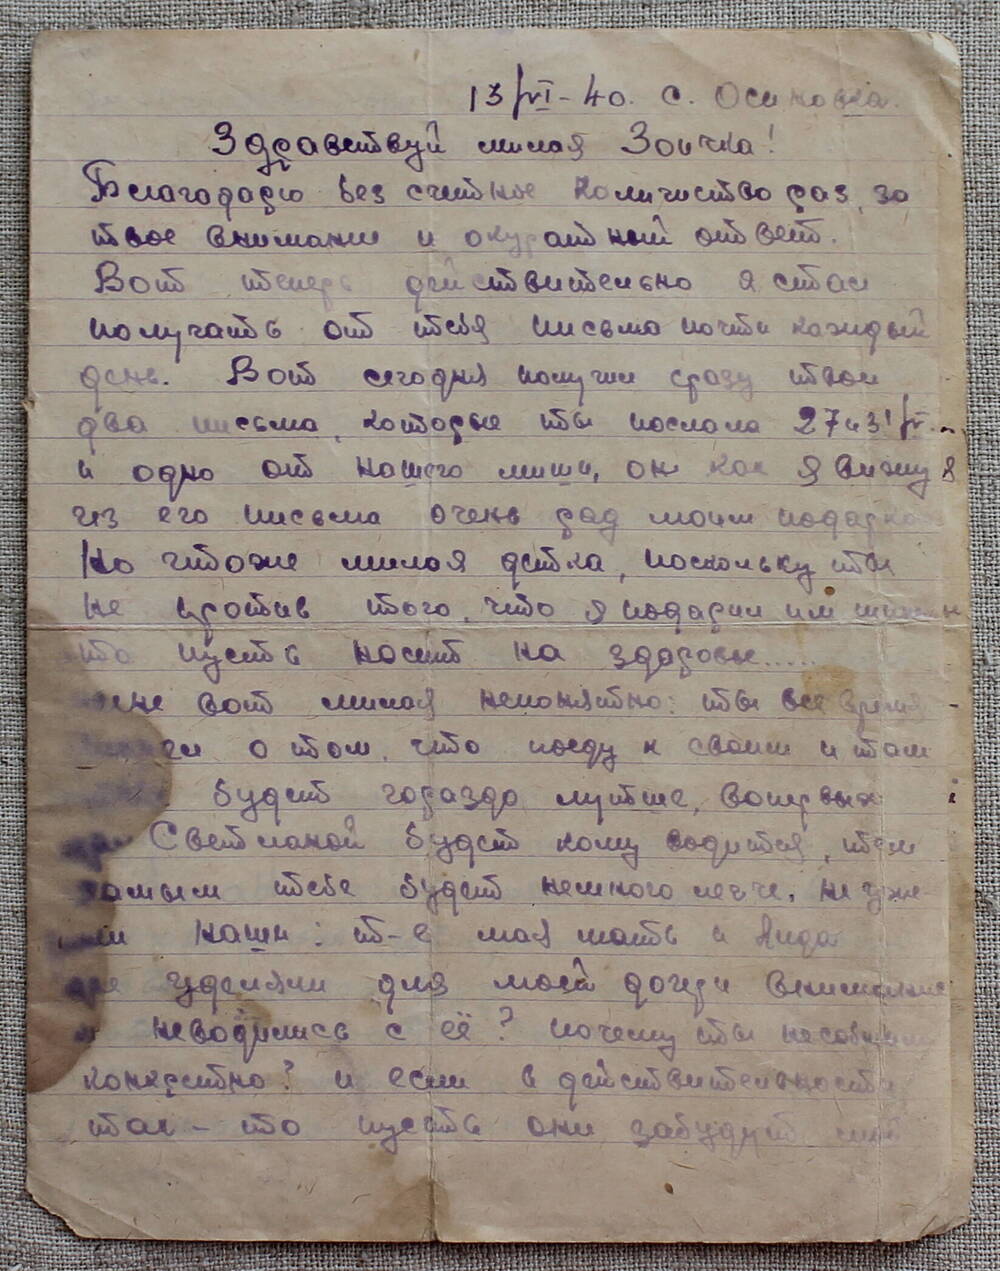 13/VI-40. с. Осиновка.
Здравствуй милая Зоичка!
Благодарю без счетное количиство раз, за
твое внимание и окуратный ответ.
Вот теперь действительно я стал
получать от тебя письма почти каждый
день. Вот сегодня получил сразу твои
два письма, которые ты послала 27 и 31/
и одно от нашего миши, он как я вижу
из его письма очень рад моим
Но чтоже милая детка, поскольку ты
не против того, что я подарил им
то пусть носит на здоровье.....
мне вот милая непонятно: ты все время
о том, что поеду к своим и там
будет гораздо лутше, вопервых
Светланой будет кому водится, тем
самым тебе будет немного легче, не уже
наши: т-е мая мать и Лида
не уделяли для моей дочери внимание
и неводились с её? почему ты
конкретно? и если в действительности
так - то пусть они забудут